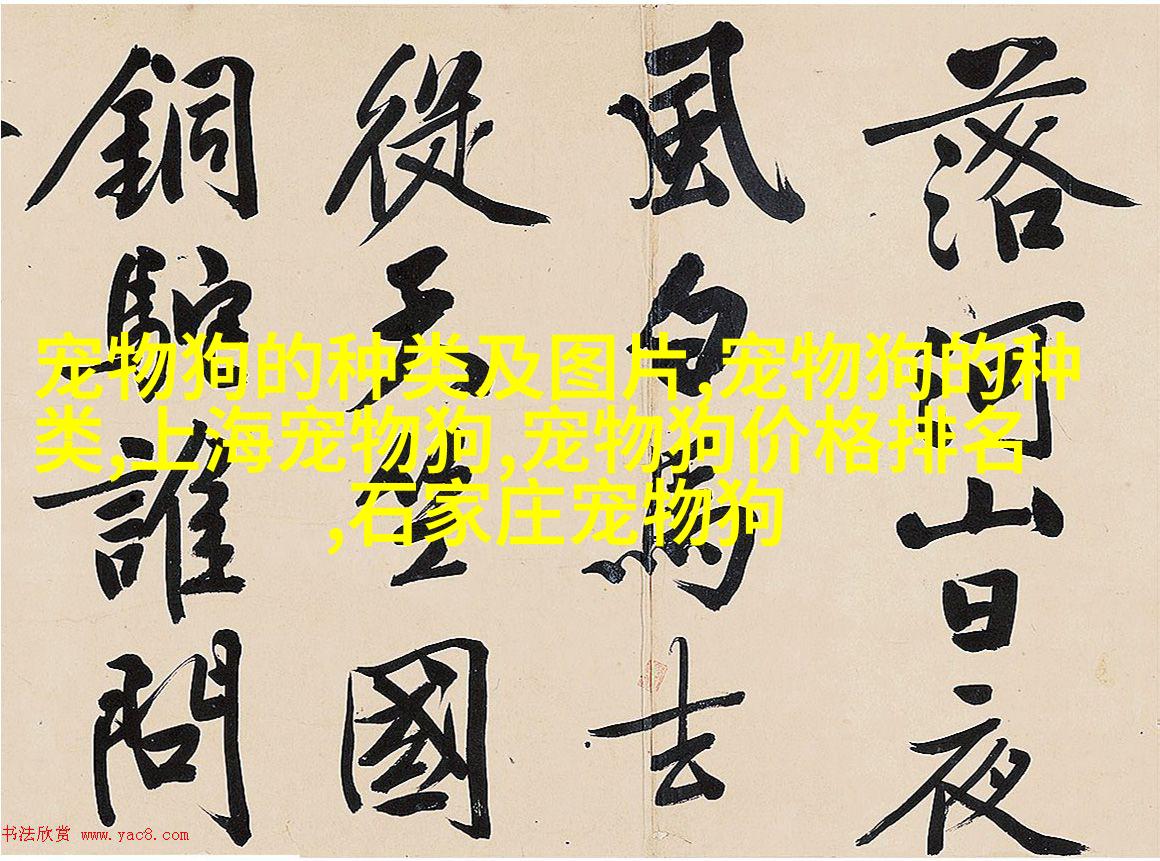 落河山日夜
風白馬去
從天竺國
銅駝誰問
宠物狗的种类及图片,宠物狗的种
类,上海宠物狗,宠物狗价格排名
,石家庄宠物狗
书法欣赏 www.yac8.com